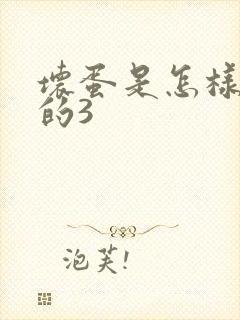 壞蛋是怎樣
的3
泡芙!